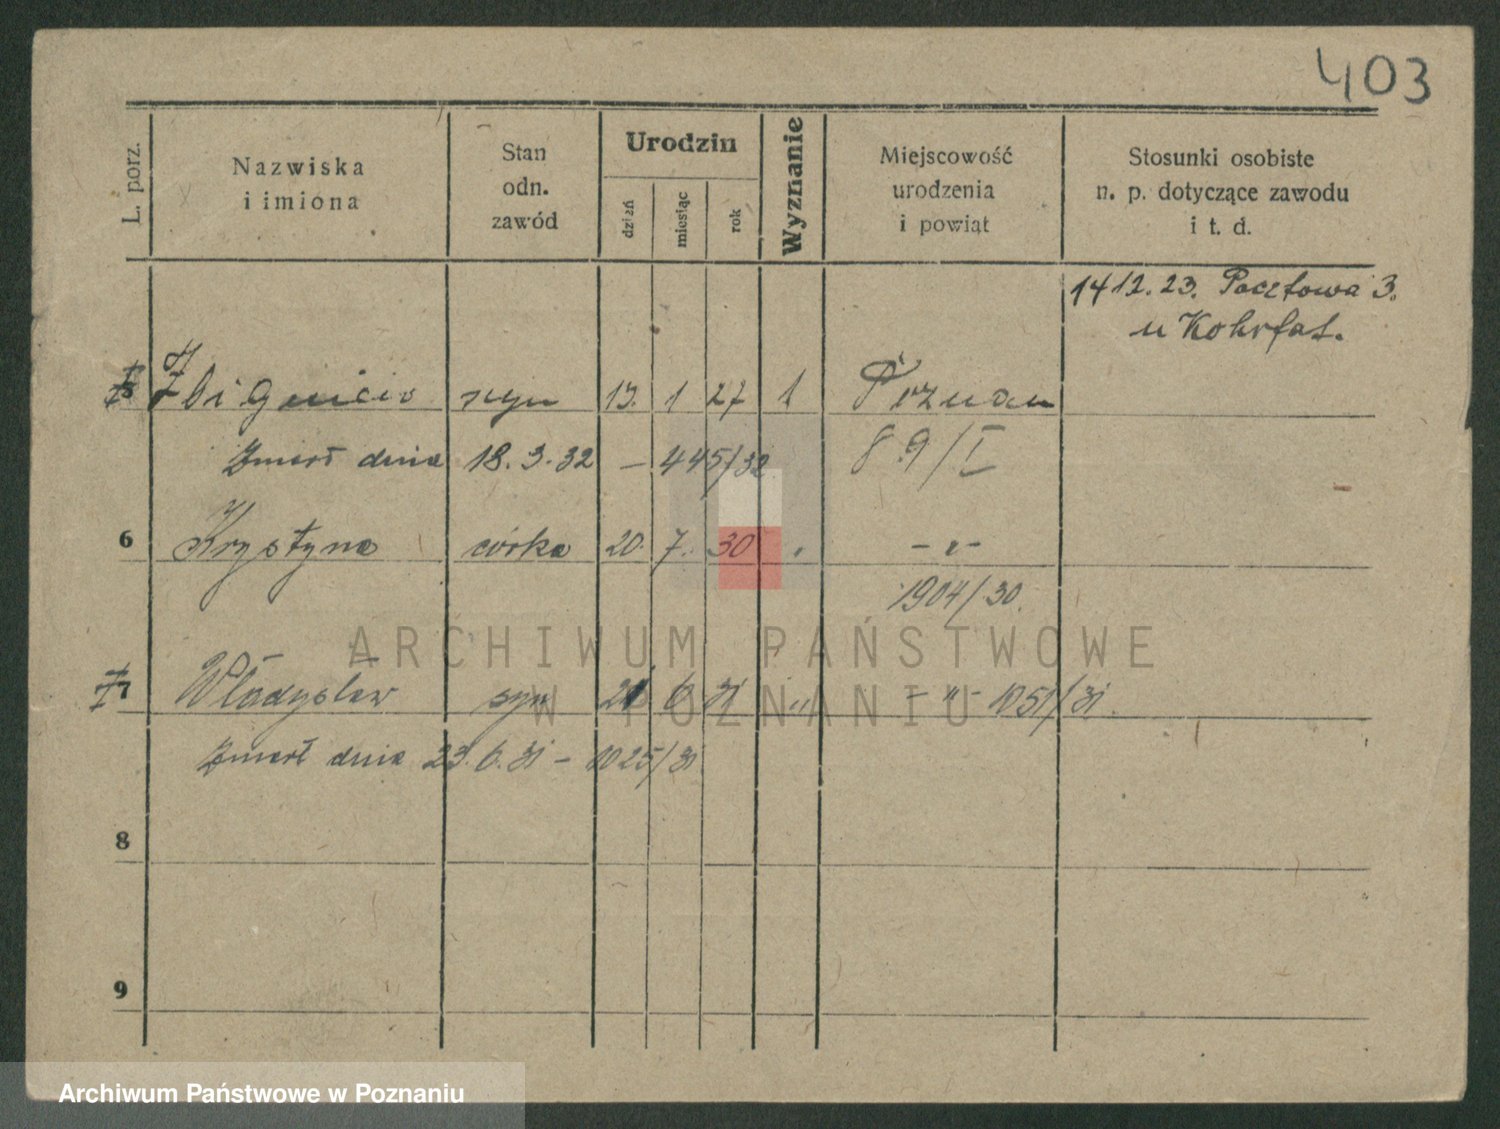 403
L. porz.
Nazwiska
i imiona
Stan
odn.
zawód
Urodzin
dzień
miesiąc
rok
Wyznanie
Miejscowość
urodzenia
i powiat
Stosunki osobiste
n. p. dotyczące zawodu
i t. d.
14 12. 23. Pocztowa 3.
u
5 Zbigniew syn 13. 1 27 1 Poznań
Zmarł dnia 18. 3. 32 – 445/32 89/I
6 Krystyna córka 20. 7. 30 „ – „ –
1904/30.
7 Władysław syn 21 6 31 „ – „ – 1051/31.
Zmarł dnia 23. 6. 31 – 1025/31
8
9
ARCHIWUM PAŃSTWOWE
W POZNANIU
Archiwum Państwowe w Poznaniu